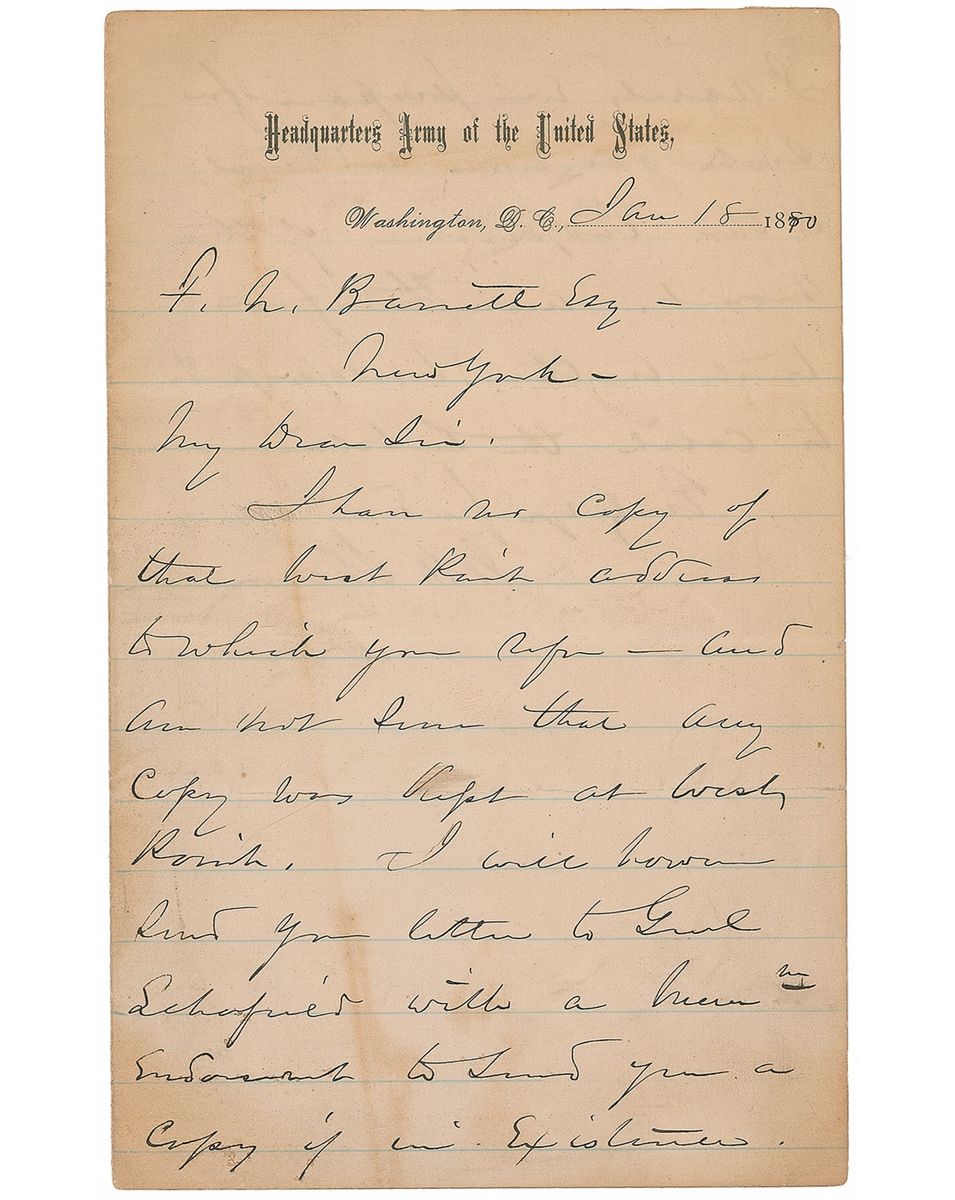 Headquarters Army of the United States,
Washington, D. C., Jan 18 1880
F. N. Barrett Esq —
New York —
My Dear Sir.
I have no copy of
that West Point address
to which you refer — and
am not sure that any
Copy was Kept at West
Point. I will however
send your letter to Genl
Schofield with a
Endorsement to send you a
Copy if in Existence.